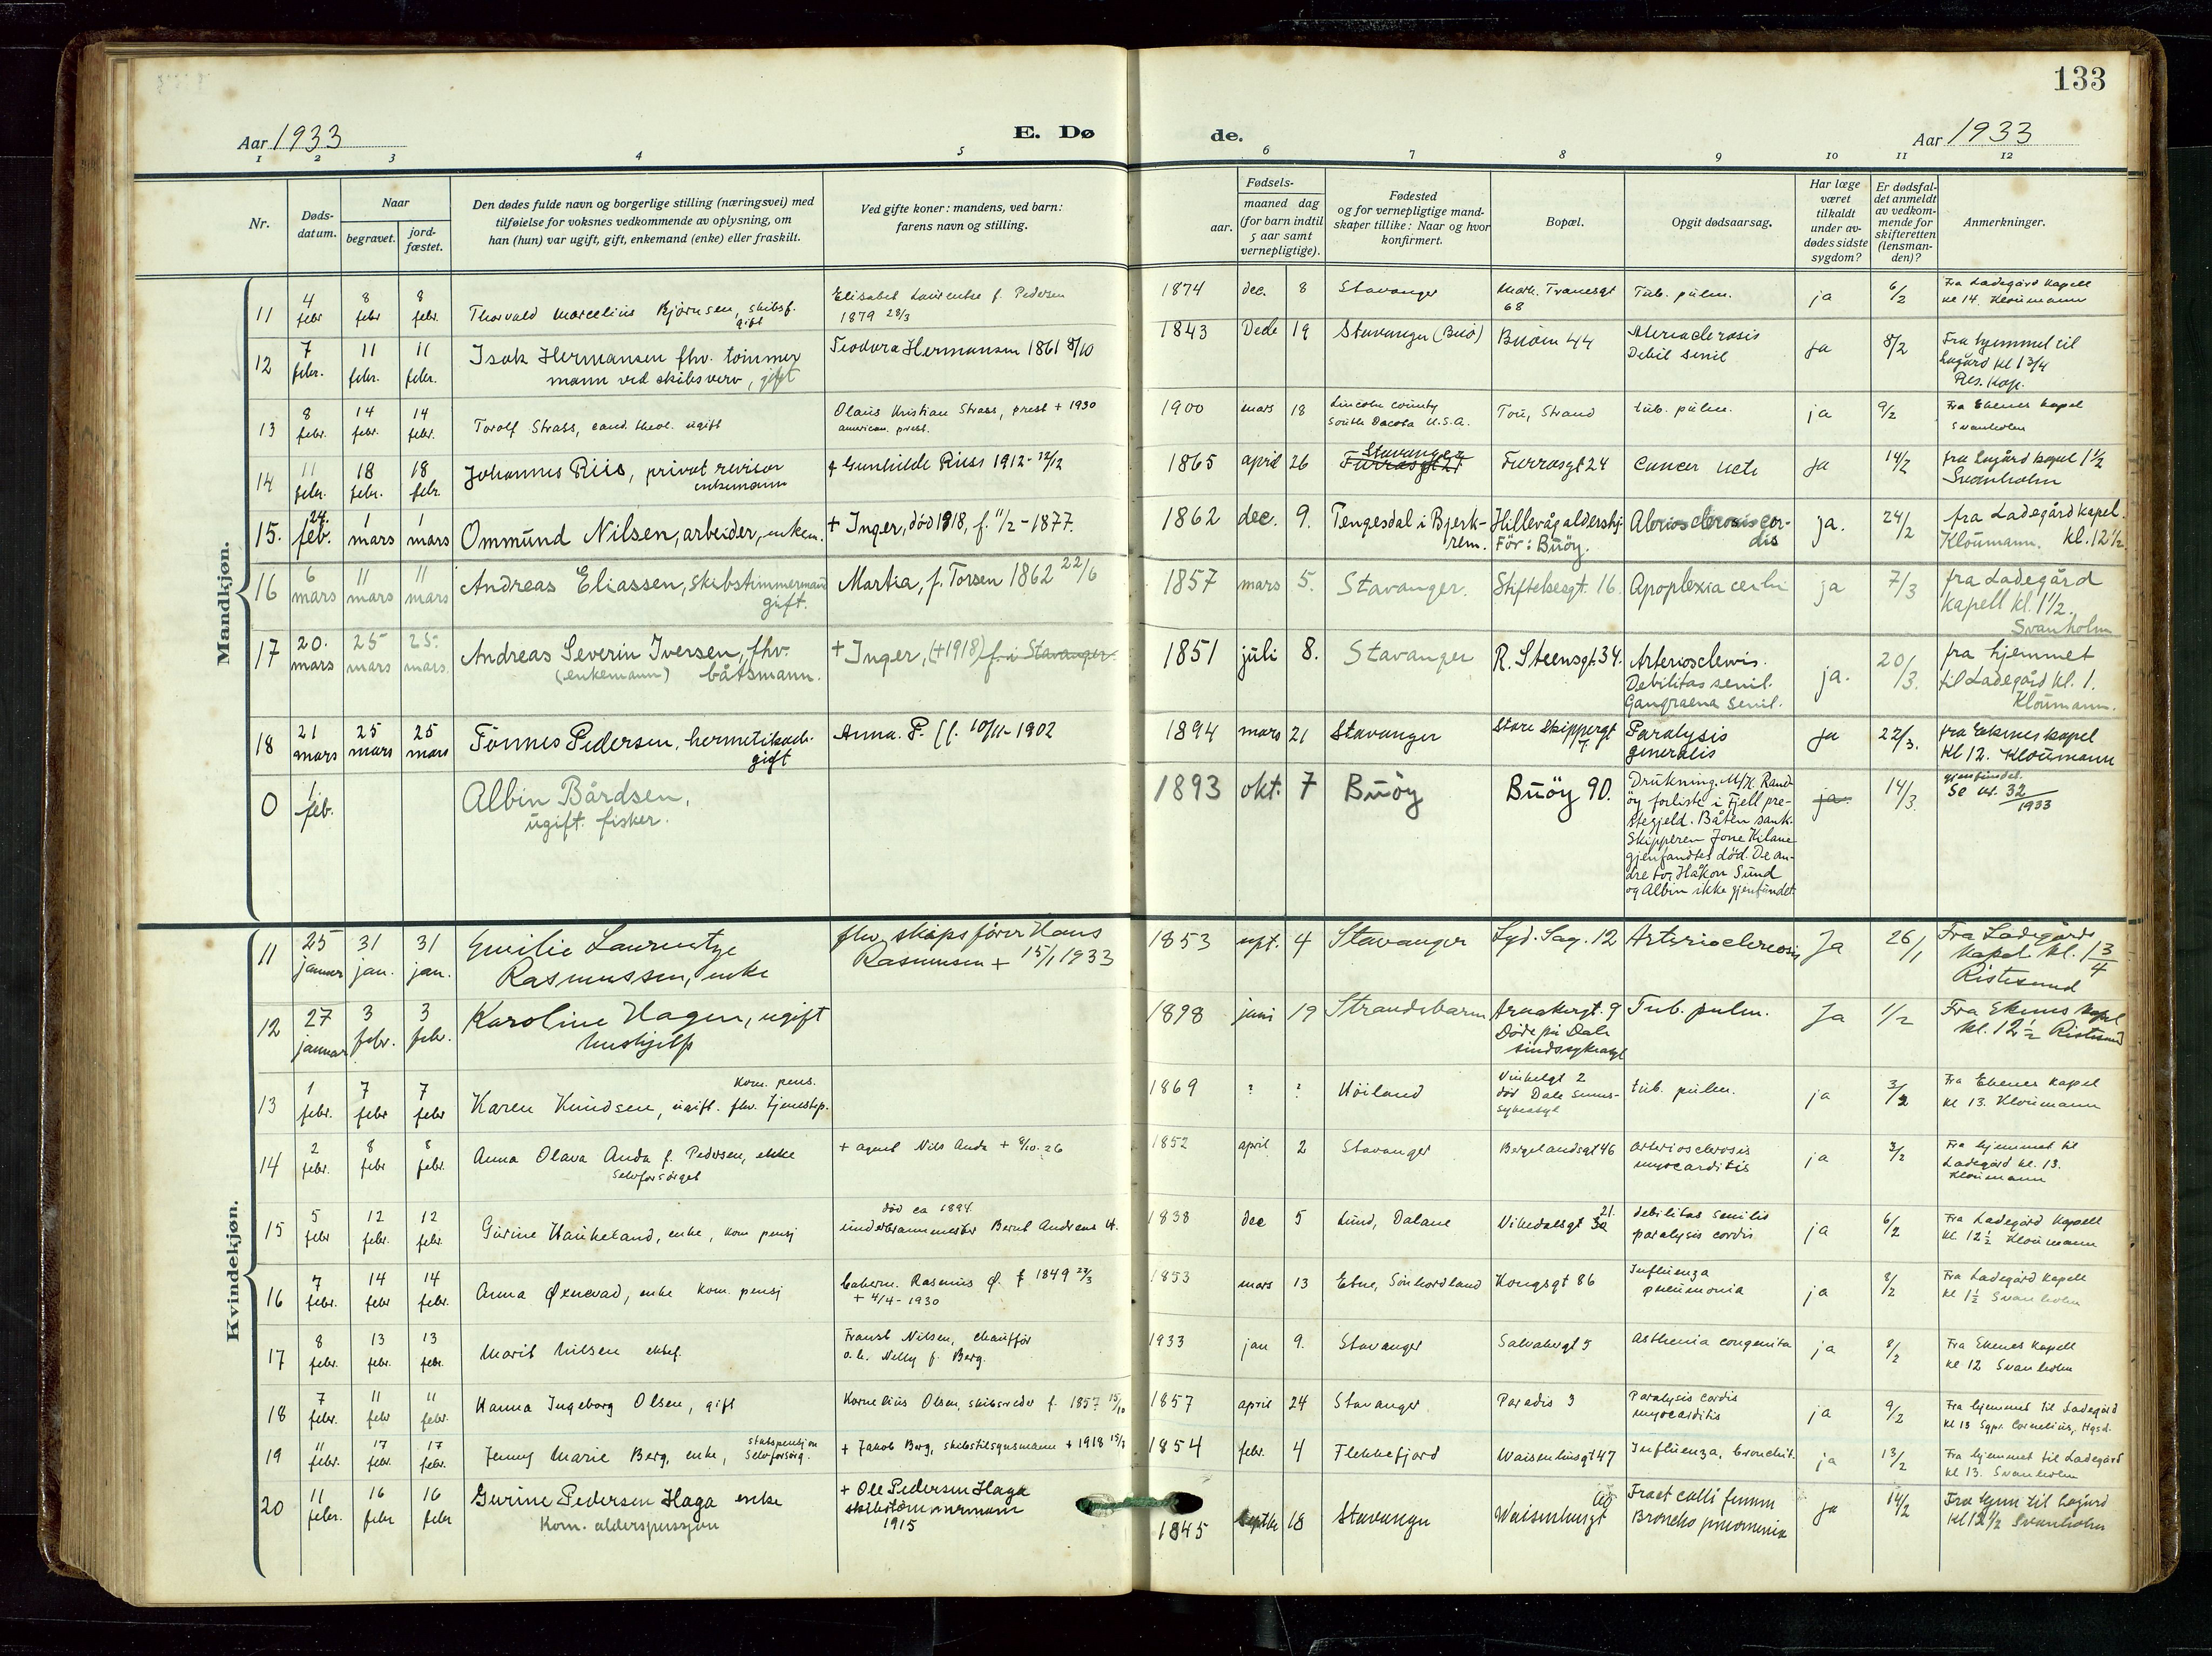 133
Aar 1933
E. Dø
de.
Aar 1933
1 2 3 4 5 6 7 8 9 10 11 12
Nr.
Døds-
datum.
Naar
begravet.
jord-
fæstet.
Den dødes fulde navn og borgerlige stilling (næringsvei) med
tilføielse for voksnes vedkommende av oplysning, om
han (hun) var ugift, gift, enkemand (enke) eller fraskilt.
Ved gifte koner: mandens, ved barn:
farens navn og stilling.
aar.
Fødsels-
maaned dag
(for barn indtil
5 aar samt
vernepligtige).
Fødested
og for vernepligtige mand-
skaper tillike: Naar og hvor
konfirmert.
Bopæl.
Opgit dødsaarsag.
Har læge
været
tilkaldt
under av-
dødes sidste
sygdom?
Er dødsfal-
det anmeldt
av vedkom-
mende for
skifteretten
(lensman-
den)?
Anmerkninger.
Mandkjøn.
11 4 febr 8 febr 8 febr. Thorvald Marcelius Bjørnsen, skibsf. gift
Elisabet Laurentse f. Pedersen
1879 28/3
1874 dec. 8 Stavanger Math. Tranesgt 68 Tub. pulm. ja 6/2 Fra Ladegård kapell
kl 14. Kloumann
12 7 febr. 11 febr. 11 febr. Isak Hermansen fhv. tømmer
mann ved skibsverv, gift
Teodora Hermansen 1861 8/10
1843 Dede 19 Stavanger (Buø) Buøen 44 Debil senil ja 8/2 Fra hjemmet til
Lagård kl 1 3/4
Res. Kap.
13 8 febr. 14 febr. 14 febr. Torolf Strass, cand. theol. ugift
Olaus Kristian Strass, prest + 1930
american. prest.
1900 mars 18 Lincoln County
South Dacota U.S.A. Tou, Strand tub. pulm. ja 9/2 Fra Ekenes Kapel
Svanholm
14 11 febr. 18 febr. 18 febr. Johannes Riis, privat revisor
enkemann
+ Gunhilde Riis 1912-12/12
1865 april 26 Stavanger Furrasgt 24 Cancer ja 14/2 fra Lagård kapel 1 1/2
Svanholm
15. 24. feb. 1 mars 1 mars Ommund Nilsen, arbeider, enkem.
+ Inger, død 1918, f. 11/2-1877.
1862 dec. 9. Tengesdal i Bjerk-
rem. Hillevåg aldershj.
Før: Buøy. cor-
dis ja. 24/2 fra Ladegård kapel.
Kloumann. kl. 12 1/2
16 6 mars 11 mars 11 mars Andreas Eliassen, skibstimmermand
gift.
Martia, f. Torsen 1862 22/6
1857 mars 5. Stavanger. Stiftelsesgt. 16. Apoplexia ja 7/3 fra Ladegård
kapell kl. 1 1/2.
Svanholm
17 20. mars 25 mars 25. mars. Andreas Severin Iversen, fhv.
(enkemann) båtsmann.
+ Inger, (+1918) f. i Stavanger.
1851 juli 8. Stavanger R. Steensgt. 34. Arteriosclerosis.
Debilitas senil.
Gangraena senil. ja. 20/3. fra hjemmet
til Ladegård kl. 1.
Kloumann.
18 21 mars 25 mars 25 mars Tønnes Pedersen, hermetikarb.
gift
Anna. P. f. 10/11-1902
1894 mars 21 Stavanger Store Skippergt 7. Paralysis
generalis ja 22/3. fra Ekenes kapel
kl 12. Kloumann
0 1. feb. Albin Bårdsen,
ugift. fisker.
1893 okt. 7 Buöy Buöy 90. Drukning. M/K. Rand-
øy forliste i Fjell pre-
stegjeld. Båten sank.
Skipperen Jone Kilane
gjenfandtes död. De an-
dre to, Håkon Sund
og Albin ikke gjenfundet. ja. 14/3. gjenfundet.
Se nr. 32/1933
Kvindekjøn.
11 25 januar 31 jan. 31 jan. Emilie Laurentze
Rasmussen, enke
fhv. skipsfører Hans
Rasmussen + 15/1 1933
1853 sept. 4 Stavanger Lgd. Lag. 12 Ja 26/1 Fra Ladegårds
kapel kl. 1 3/4
Ristesund
12 27 januar 3 febr. 3 febr. Karoline Hagen, ugift
hushjelp
1898 juni 19 Strandebarm 9
Døde på Dale
sindssykeasyl Tub. pulm. Ja 1/2 Fra Ekenes kapel
kl. 12 1/2 Ristesund
13 1 febr. 7 febr. 7 febr Karen Knudsen, ugift. fhv. tjenestep. kom. pens.
1869 ? ? Höiland Vinkelgt 2
död Dale sinns-
sykeasyl tub. pulm. ja 3/2 Fra Ekenes Kapel
kl 13. Kloumann
14 2 febr. 8 febr 8 febr. Anna Olava Anda f. Pedersen, enke
selvforsørget
+ agent Nils Anda + 8/10.26
1852 april 2 Stavanger Bergelandsgt 46 arteriosclerosis
myocarditis ja 3/2 Fra hjemmet til
Ladegård kl. 13.
Kloumann
15 5 febr 12 febr. 12 febr. Gurine Haukeland, enke, kom pensj
død ca 1894
underbrannmester Bernt Andreas H.
1838 dec 5 Lund, Dalane Vikedalsgt 21. debilitas senilis
paralysis cordis ja 6/2 Fra Ladegård Kapell
kl. 12 1/2 Kloumann
16 7 febr. 14 febr 14 febr. Anna Øxnevad, enke kom. pensj
Rasmus Ø. f 1849 29/3
+ 4/4-1930
1853 mars 13 Etne, Sönhordland Kongsgt 86 Influenza
pneumonia ja 8/2 Fra Ladegård Kapell
kl 1 1/2 Svanholm
17 8 febr. 13 febr. 13 febr. Marit Nilsen ektef.
Franst Nilsen, chauffør
o.h. Nelly f. Berg.
1933 jan 9. Stavanger Salvabergt 5 asthenia congenita ja 8/2 Fra Ekenes Kapell
kl 12 Svanholm
18 7 febr. 11 febr. 11 febr. Hanna Ingeborg Olsen, gift
Kornelius Olsen, skibsreder f. 1857 15/10
1857 april 24 Stavanger Paradis 3 Paralysis cordis
myocarditis ja 9/2 Fra hjemmet til Ladegård
kl 13 Sgpr. Cornelius, Hgsd.
19 11 febr. 17 febr. 17 febr. Jenny Marie Berg, enke, statspensjon
selvforsörg.
+ Jakob Berg, skibstilsynsmann + 1918 15/7
1854 febr. 4 Flekkefjord Waisenhusgt 47 Influenza, bronchit. ja 13/2 Fra hjemmet til Ladegård
kl 13. Svanholm
20 11 febr. 16 febr 16 febr Gurine Pedersen Haga enke
Kom. alderspensjon
+ Ole Pedersen Haga
skibstømmermann
1915
1845 septbe 18 Stavanger Waisenhusgt Fract colli femm
Broncho pneumonia ja 14/2 Fra hjem til Lagård
kl 12 1/2 Svanholm